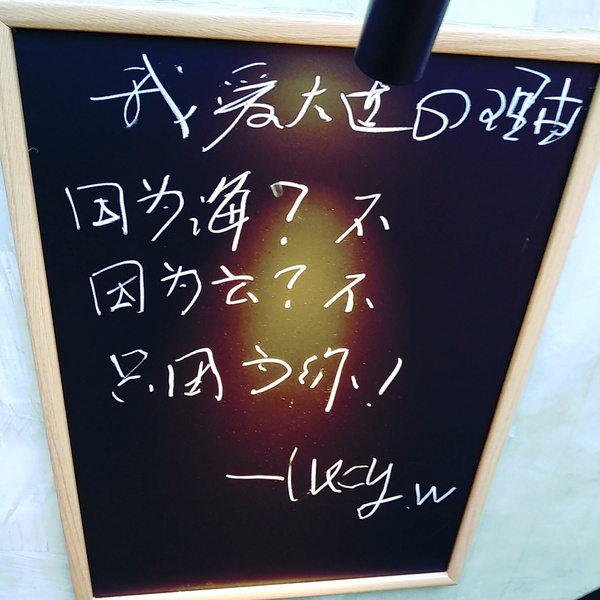 我爱大连の理由
因为海？不
因为云？不
只因为你！